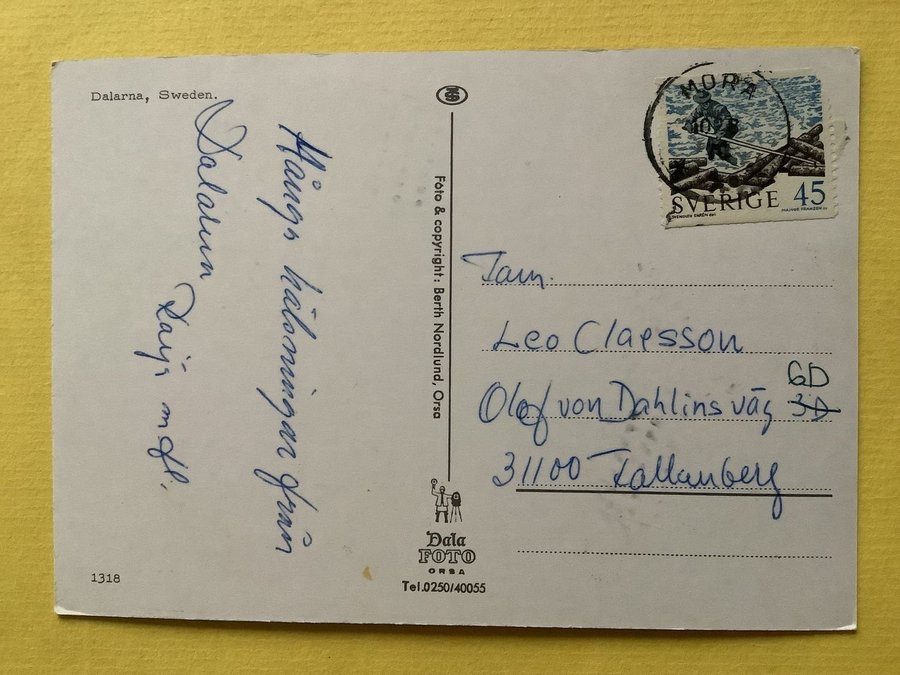 Dalarna, Sweden.
Många hälsningar från
Dalarna
Kaija m fl.
1318
Foto & copyright: Berth Nordlund, Orsa
Dala
FOTO
ORSA
Tel.0250/40055
MORA
SVERIGE 45
Fam.
Leo Claesson
Olof von Dahlins väg 3D
6D
31100 Falkenberg